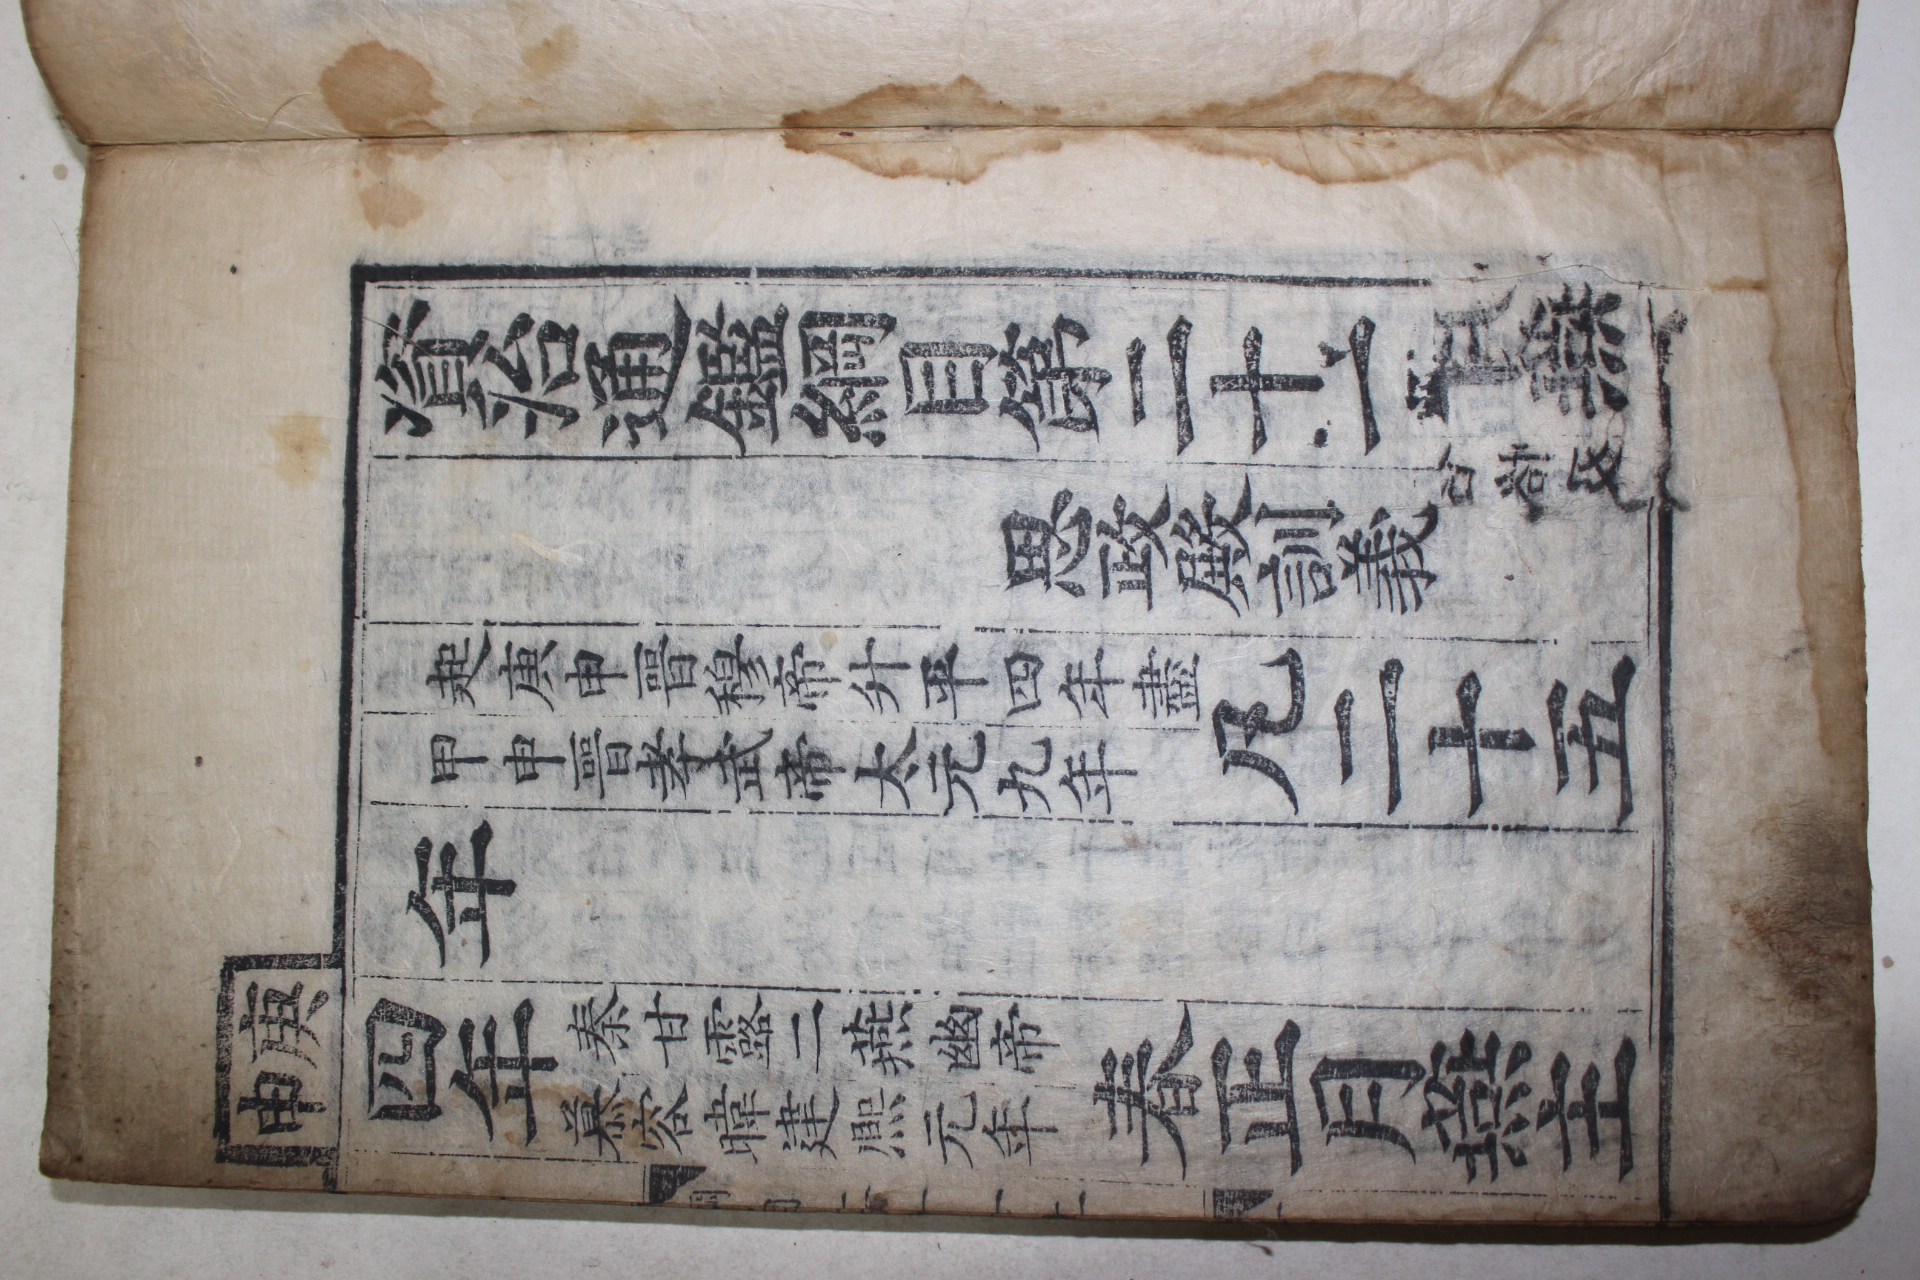 資治通鑑綱目第二十一
思政殿訓義
起庚申晉穆帝升平四年盡
甲申晉孝武帝太元九年
凡二十五
年
庚申
四年
秦甘露二燕幽帝
慕容暐建熙元年
春正月燕主